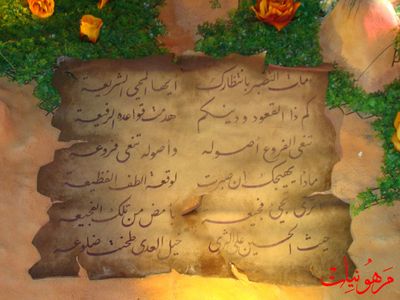 مات التصبر بانتظارك أيها المحيي الشريعة
كم ذا القعود ودينكم هدمت قواعده الرفيعة
تنعى الفروع أصوله وأصوله تنعى فروعه
ماذا يهيجك ان صبرت لوقعة الطف الفظيعة
أترى تجئ فجيعة بأمض من تلك الفجيعة
حيث الحسين على الثرى خيل العدى طحنت ضلوعه
مَرهُونيات